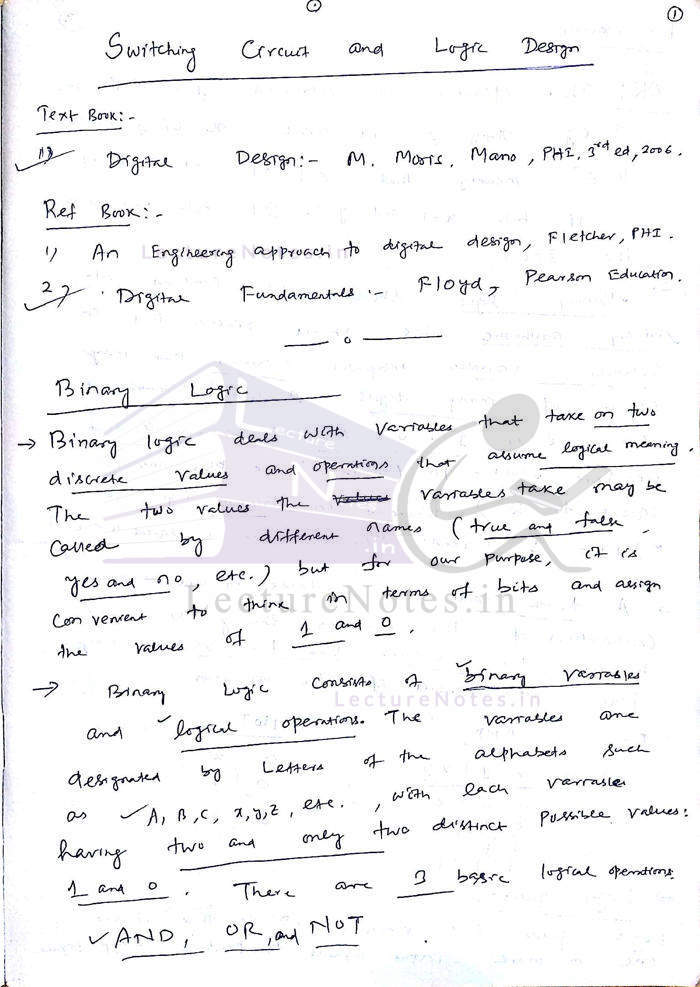 1
Switching Circuit and Logic Design
Text Book:-
1) Digital Design:- M. Morris. Mano, PHI, 3rd ed, 2006.
Ref Book:-
1) An Engineering approach to digital design, Fletcher, PHI.
2) Digital Fundamentals:- Floyd, Pearson Education.
Binary Logic
→ Binary logic deals with variables that take on two
discrete values and operations that assume logical meaning.
The two values the values variables take may be
called by different names (true and false,
yes and no, etc.) but for our purpose, it is
convenient to think in terms of bits and assign
the values of 1 and 0.
→ Binary Logic consists of binary variables
and logical operations. The variables are
designated by Letters of the alphabets such
as A, B, C, x, y, z, etc., with each variable
having two and only two distinct possible values:
1 and 0. There are 3 basic logical operations
AND, OR, and NOT.
LectureNotes.in
LectureNotes.in
LectureNotes.in
Lecture
N
.in